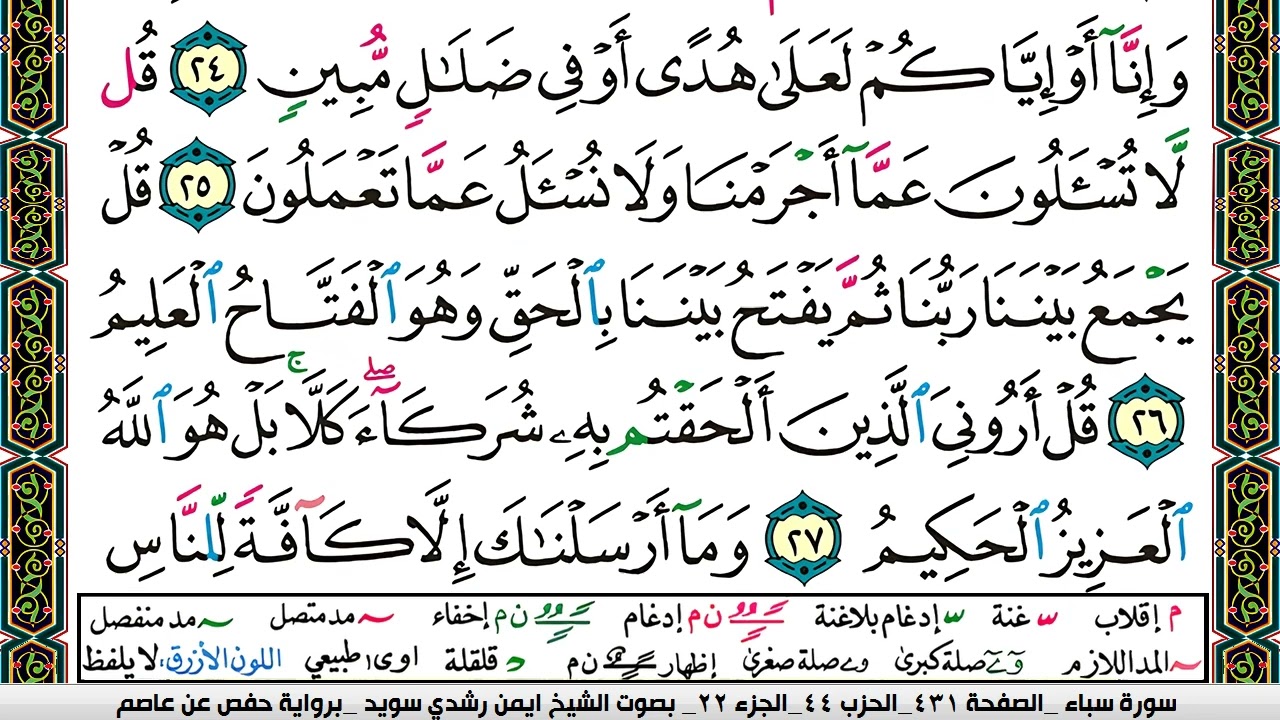 وَإِنَّآ أَوْ إِيَّاكُمْ لَعَلَىٰ هُدًى أَوْ فِي ضَلَـٰلٍ مُّبِينٍ ٢٤ قُل
لَّا تُسْـَٔلُونَ عَمَّآ أَجْرَمْنَا وَلَا نُسْـَٔلُ عَمَّا تَعْمَلُونَ ٢٥ قُلْ
يَجْمَعُ بَيْنَنَا رَبُّنَا ثُمَّ يَفْتَحُ بَيْنَنَا بِٱلْحَقِّ وَهُوَ ٱلْفَتَّاحُ ٱلْعَلِيمُ
٢٦ قُلْ أَرُونِيَ ٱلَّذِينَ أَلْحَقْتُم بِهِۦ شُرَكَآءَ ۖ كَلَّا ۚ بَلْ هُوَ ٱللَّهُ
ٱلْعَزِيزُ ٱلْحَكِيمُ ٢٧ وَمَآ أَرْسَلْنَـٰكَ إِلَّا كَآفَّةً لِّلنَّاسِ
م إقلاب ـّ غنة ـّ إدغام بلاغنة ن م إدغام ن م إخفاء ~ مد متصل ~ مد منفصل
~ المد اللازم و ے صلة كبرى و ے صلة صغرى إظهار ن م قلقلة ا و ى طبيعي اللون الأزرق، لا يلفظ
سورة سباء _الصفحة ٤٣١_الحزب ٤٤_الجزء ٢٢_ بصوت الشيخ ايمن رشدي سويد _برواية حفص عن عاصم